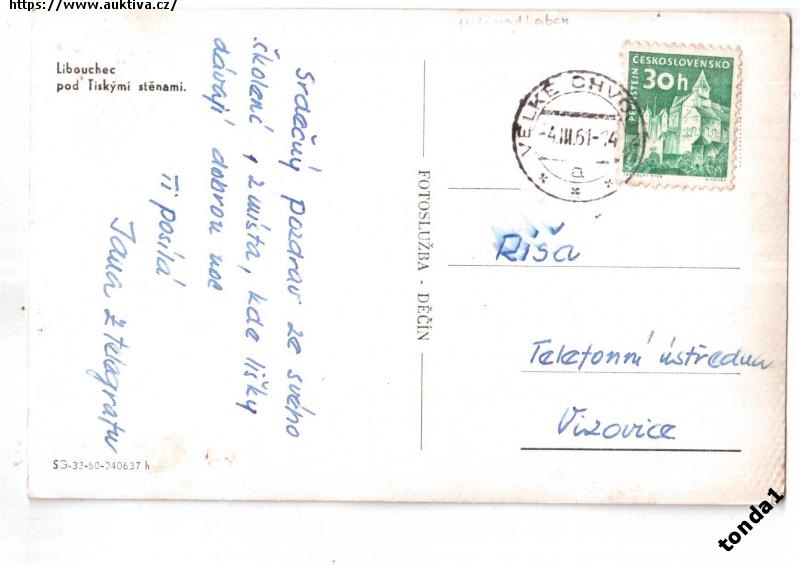 https://www.auktiva.cz/
Libouchec
pod Tiskými stěnami.
Srdečný pozdrav ze svého
školení, z místa, kde lišky
dávají dobrou noc
Ti posílá
Jana z telegrafu
SG-33-60-040637 h
FOTOSLUŽBA - DĚČÍN
ČESKOSLOVENSKO
30h
PERNŠTEJN
VELKÉ CHVOJNO
-4.III.61-14
a
Ríša
Telefonní ústředna
Vizovice
tonda1